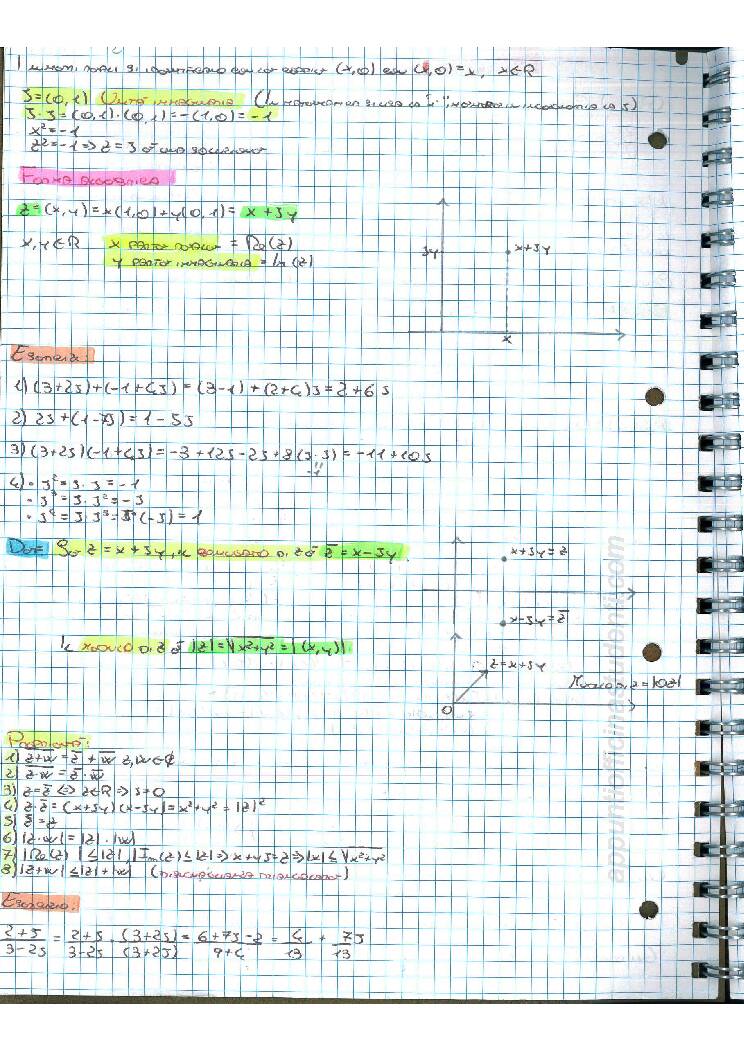 I numeri reali si identificano con le coppie (x,0) con (x,0)=x, x∈R
J=(0,1) Unità immaginaria (In matematica si usa la "i", mentre in ingegneria la J)
J·J=(0,1)·(0,1)=-(1,0)=-1
x²=-1
z²=-1⇒z=J è una soluzione
Forma algebrica
z=(x,y)=x(1,0)+y(0,1)= x+Jy
x,y∈R x parte reale = Re(z)
y parte immaginaria = Im(z)
Jy
x+Jy
x
Esempi:
1) (3+2J)+(-1+4J)=(3-1)+(2+4)J=2+6J
2) 2J+(1-7J)=1-5J
3) (3+2J)(-1+4J)=-3+12J-2J+8(J·J)=-11+10J
-1
4) • J²=J·J=-1
• J³=J·J²=-J
• J⁴=J·J³=J·(-J)=1
Def: Se z=x+Jy, il coniugato di z è z̄=x-Jy.
x+Jy=z
x-Jy=z̄
Il modulo di z è |z|=√x²+y²=|(x,y)|.
z=x+Jy
Modulo di z=|0z|
0
Proprietà:
1) z+w̅=z̅+w̅ z,w∈₵
2) z·w̅=z̅·w̅
3) z=z̅⇔z∈R⇒J=0
4) z·z̅=(x+Jy)(x-Jy)=x²+y²=|z|²
5) z̿=z
6) |z·w|=|z|·|w|
7) |Re(z)|≤|z|, |Im(z)≤|z|⇒x+yJ=z⇒|x|≤√x²+y²
8) |z+w|≤|z|+|w| (Disuguaglianza triangolare)
Esercizio:
2+J/3-2J = 2+J/3-2J · (3+2J)/(3+2J) = 6+7J-2/9+4 = 4/13 + 7J/13
appuntiofficinastudenti.com